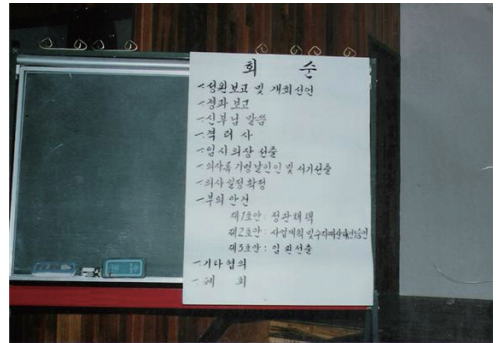 회 순
-성원보고 및 개회선언
-경과보고
-신부님 말씀
-격려사
-임시의장 선출
-의사록 기명날인인 및 서기선출
-의사일정확정
-부의안건
제1호안: 정관채택
제2호안: 사업계획 및 수지예산
제3호안: 임원선출
-기타협의
-폐 회